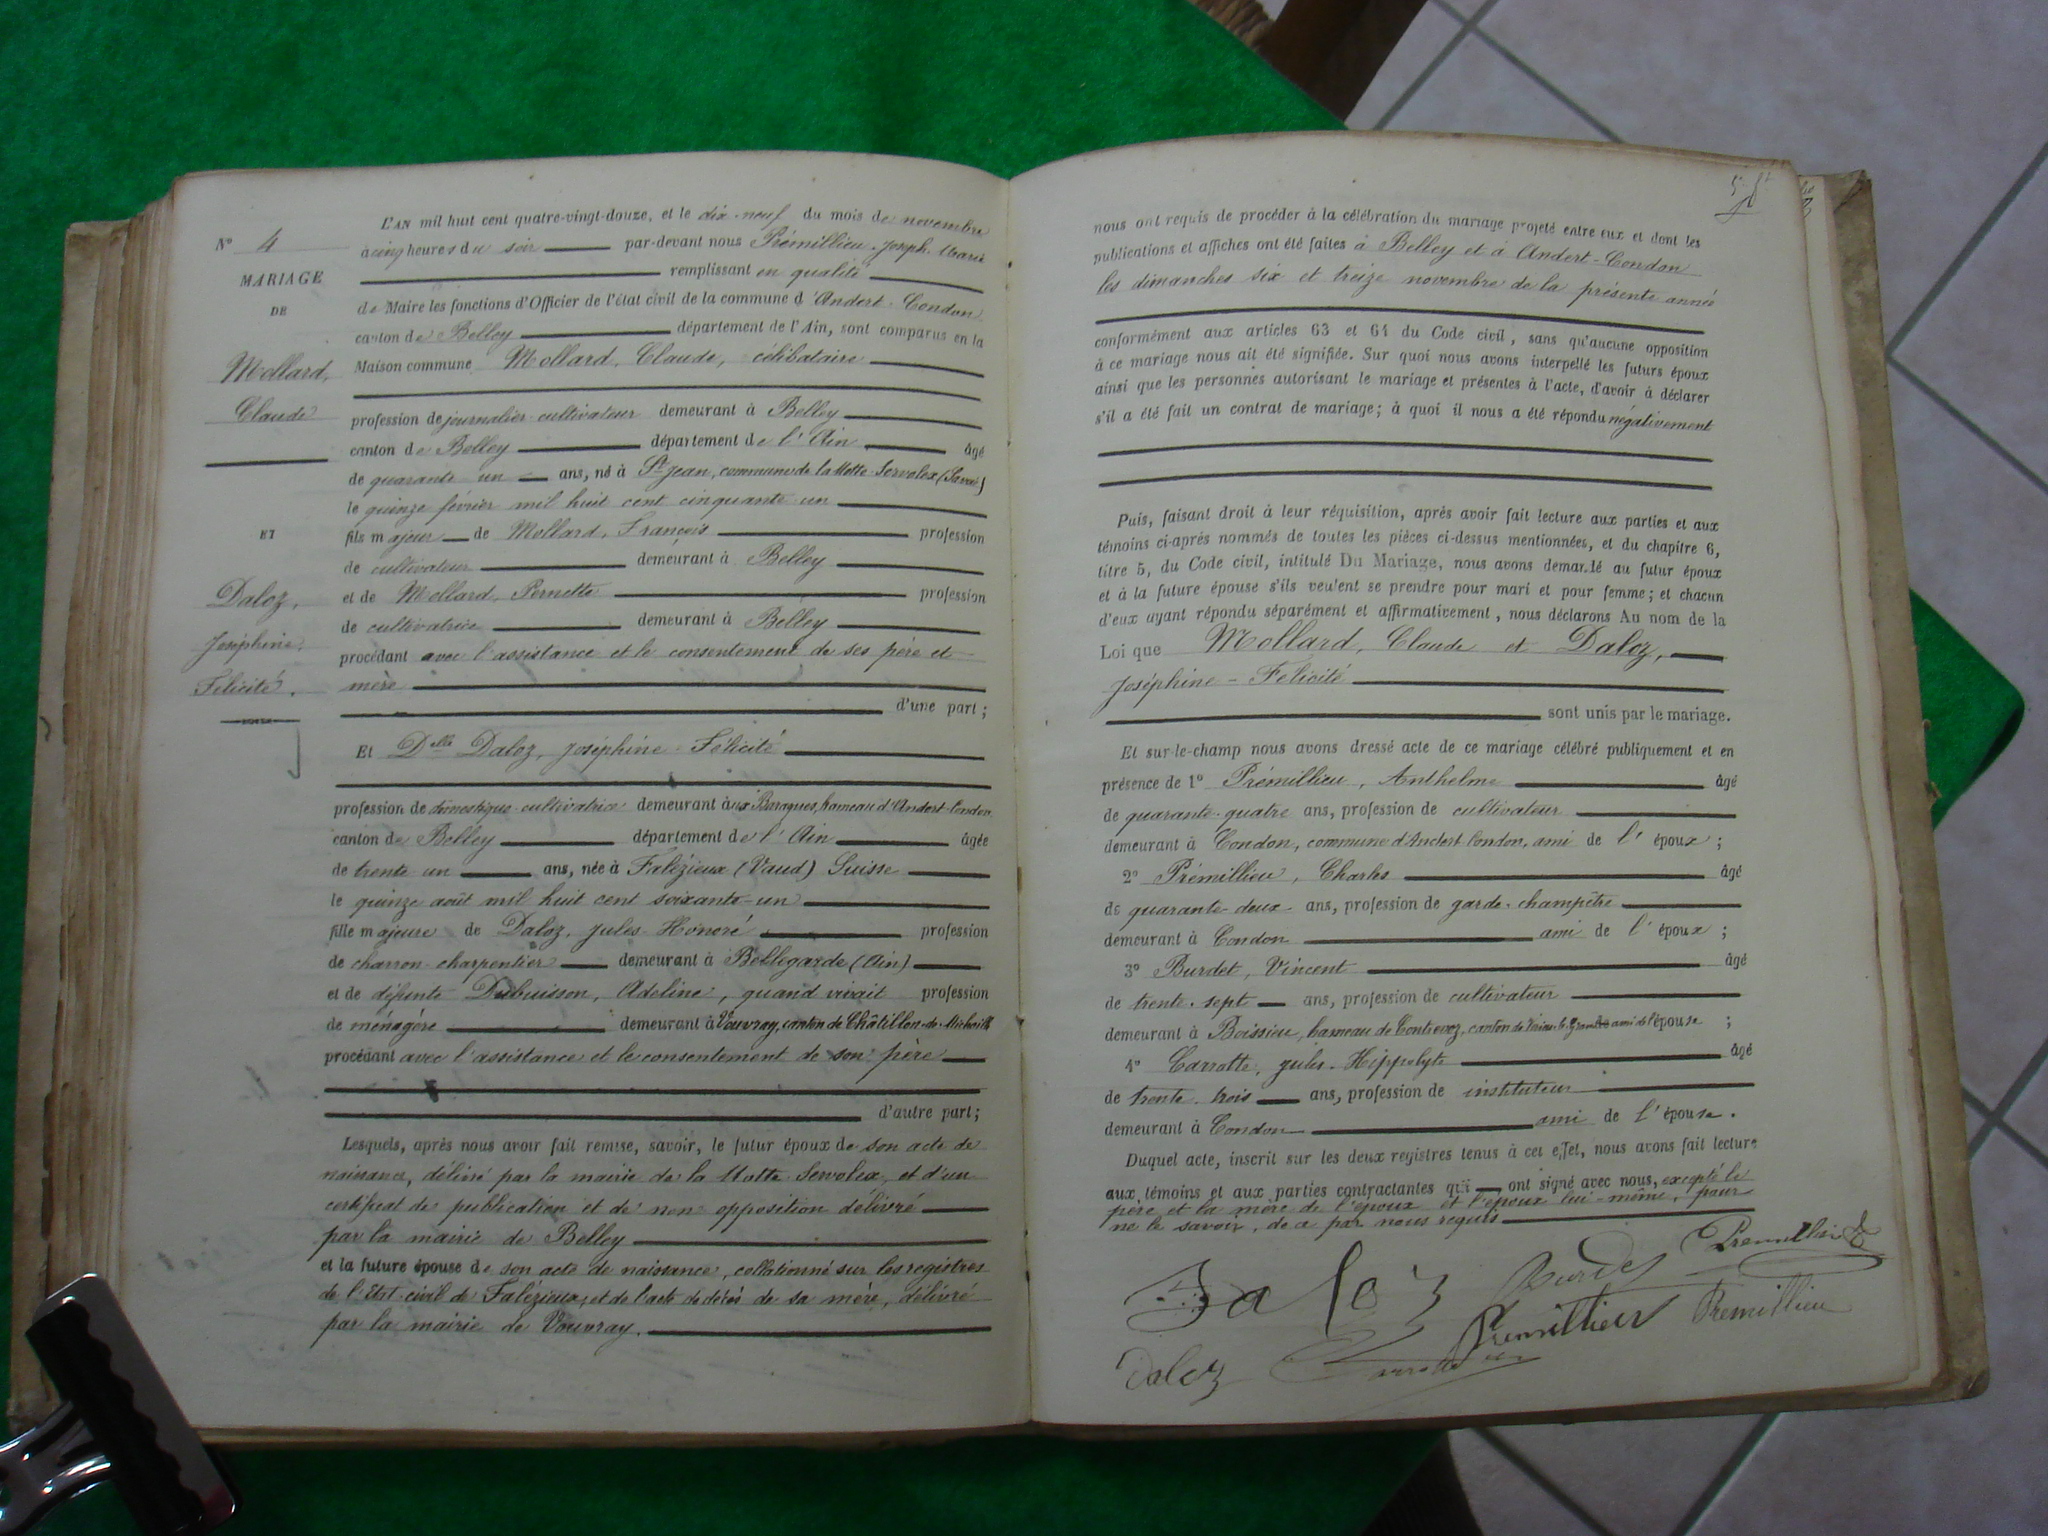 N° 4
MARIAGE
DE
Mollard,
Claude
ET
Daloz,
Joséphine
Félicité.
L'AN mil huit cent quatre-vingt-douze, et le dix-neuf du mois de novembre
à cinq heures du soir par-devant nous Prémillieu, Joseph-Marie
remplissant en qualité
de Maire les fonctions d'Officier de l'état civil de la commune d'Andert-Condon
canton de Belley département de l'Ain, sont comparus en la
Maison commune Mollard, Claude, célibataire
profession de journalier-cultivateur demeurant à Belley
canton de Belley département de l'Ain âgé
de quarante-un ans, né à St Jean, commune de la Motte-Servolex (Savoie)
le quinze février mil huit cent cinquante-un
fils majeur de Mollard, François profession
de cultivateur demeurant à Belley
et de Mollard, Pernette profession
de cultivatrice demeurant à Belley
procédant avec l'assistance et le consentement de ses père et
mère
d'une part;
Et Delle Daloz, Joséphine-Félicité
profession de domestique-cultivatrice demeurant aux Baraques, hameau d'Andert-Condon
canton de Belley département de l'Ain âgée
de trente-un ans, née à Falézieux (Vaud) Suisse
le quinze août mil huit cent soixante-un
fille majeure de Daloz, Jules-Honoré profession
de charron-charpentier demeurant à Bellegarde (Ain)
et de défunte Dubuisson, Adeline, quand vivait profession
de ménagère demeurant à Vouvray, canton de Châtillon-de-Michaille
procédant avec l'assistance et le consentement de son père
d'autre part;
Lesquels, après nous avoir fait remise, savoir, le futur époux de son acte de
naissance, délivré par la mairie de la Motte-Servolex, et d'un
certificat de publication et de non opposition délivré
par la mairie de Belley
et la future épouse de son acte de naissance, collationné sur les registres
de l'Etat-civil de Falézieux, et de l'acte de décès de sa mère, délivré
par la mairie de Vouvray.
nous ont requis de procéder à la célébration du mariage projeté entre eux et dont les
publications et affiches ont été faites à Belley et à Andert-Condon
les dimanches six et treize novembre de la présente année
conformément aux articles 63 et 64 du Code civil, sans qu'aucune opposition
à ce mariage nous ait été signifiée. Sur quoi nous avons interpellé les futurs époux
ainsi que les personnes autorisant le mariage et présentes à l'acte, d'avoir à déclarer
s'il a été fait un contrat de mariage; à quoi il nous a été répondu négativement
Puis, faisant droit à leur réquisition, après avoir fait lecture aux parties et aux
témoins ci-après nommés de toutes les pièces ci-dessus mentionnées, et du chapitre 6,
titre 5, du Code civil, intitulé Du Mariage, nous avons demandé au futur époux
et à la future épouse s'ils veulent se prendre pour mari et pour femme; et chacun
d'eux ayant répondu séparément et affirmativement, nous déclarons Au nom de la
Loi que Mollard, Claude et Daloz,
Joséphine-Félicité
sont unis par le mariage.
Et sur-le-champ nous avons dressé acte de ce mariage célébré publiquement et en
présence de 1° Prémillieu, Anthelme âgé
de quarante-quatre ans, profession de cultivateur
demeurant à Condon, commune d'Andert-Condon, ami de l'époux;
2° Prémillieu, Charles âgé
de quarante-deux ans, profession de garde-champêtre
demeurant à Condon ami de l'époux;
3° Burdet, Vincent âgé
de trente-sept ans, profession de cultivateur
demeurant à Boissieu, hameau de Contrevoz, canton de Virieu-le-Grand ami de l'épouse;
4° Carrotte, Jules-Hippolyte âgé
de trente-trois ans, profession de instituteur
demeurant à Condon ami de l'épouse.
Duquel acte, inscrit sur les deux registres tenus à cet effet, nous avons fait lecture
aux témoins et aux parties contractantes qui ont signé avec nous, excepté le
père et la mère de l'époux et l'époux lui-même, pour
ne le savoir, de ce par nous requis
Daloz Burdet Premillieu
Premillieu Premillieu
Daloz Carrotte